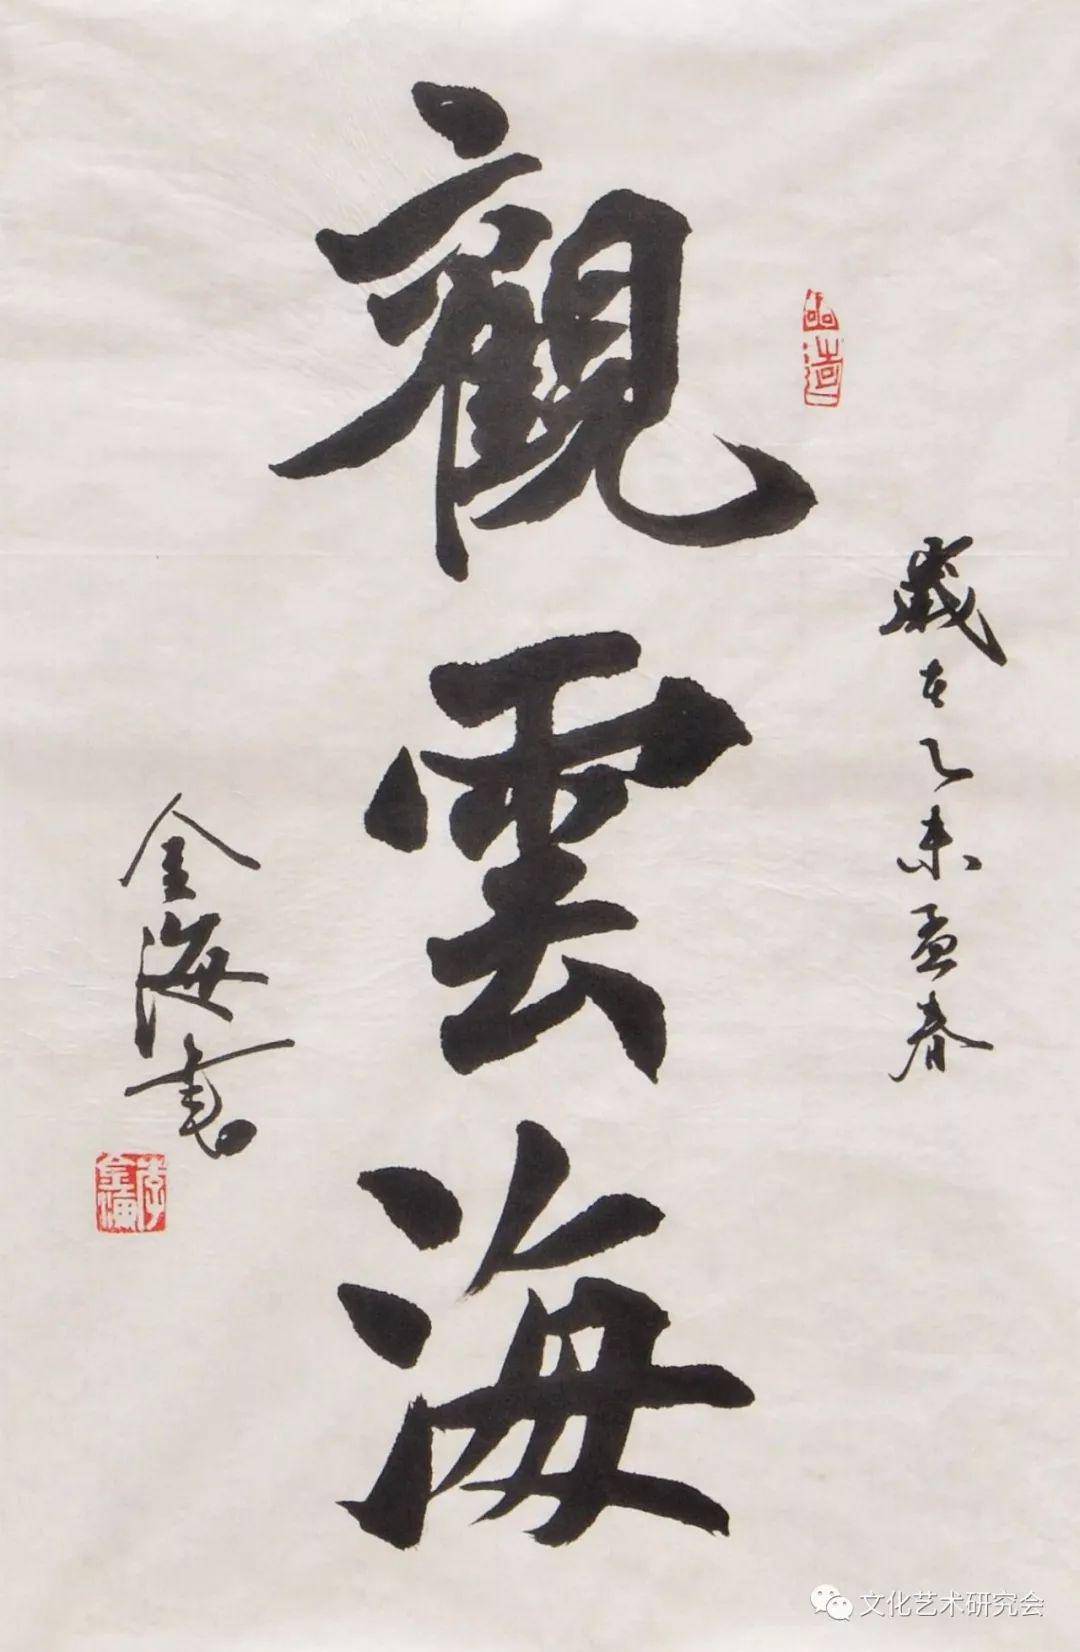 歲在乙未孟春
觀雲海
金海书
李金海
文化艺术研究会